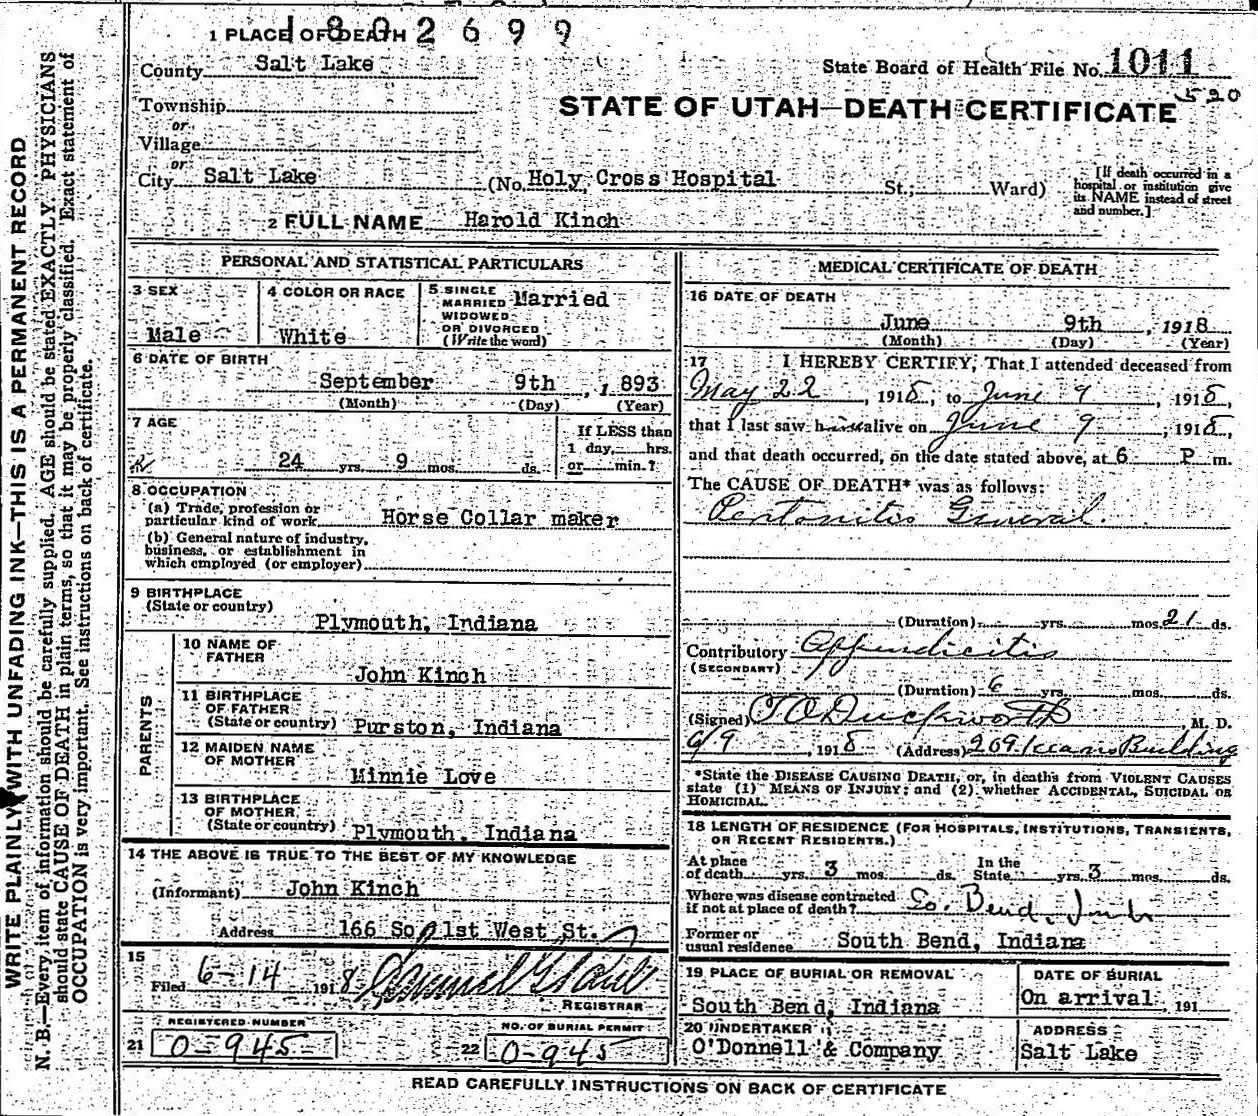 1802699
1 PLACE OF DEATH
County Salt Lake
State Board of Health File No. 1011
520
Township
or
Village
or
City Salt Lake (No. Holy Cross Hospital St.; Ward)
STATE OF UTAH—DEATH CERTIFICATE
[If death occurred in a
hospital or institution give
its NAME instead of street
and number.]
2 FULL NAME Harold Kinch
PERSONAL AND STATISTICAL PARTICULARS
3 SEX
Male
4 COLOR OR RACE
White
5 SINGLE
MARRIED
WIDOWED
OR DIVORCED
(Write the word)
Married
6 DATE OF BIRTH
September 9th, 1893
(Month) (Day) (Year)
7 AGE
24 yrs. 9 mos. ds.
If LESS than
1 day, hrs.
or min.?
8 OCCUPATION
(a) Trade, profession or
particular kind of work Horse Collar maker
(b) General nature of industry,
business, or establishment in
which employed (or employer)
9 BIRTHPLACE
(State or country)
Plymouth, Indiana
PARENTS
10 NAME OF
FATHER
John Kinch
11 BIRTHPLACE
OF FATHER
(State or country) Purston, Indiana
12 MAIDEN NAME
OF MOTHER
Minnie Love
13 BIRTHPLACE
OF MOTHER
(State or country) Plymouth, Indiana
14 THE ABOVE IS TRUE TO THE BEST OF MY KNOWLEDGE
(Informant) John Kinch
Address 166 So 1st West St.
15
Filed 6-14 1918
REGISTRAR
REGISTERED NUMBER
21 0-945
NO. OF BURIAL PERMIT
22 0-945
MEDICAL CERTIFICATE OF DEATH
16 DATE OF DEATH
June 9th, 1918
(Month) (Day) (Year)
17 I HEREBY CERTIFY, That I attended deceased from
May 22, 1918, to June 9, 1918,
that I last saw him alive on June 9, 1918,
and that death occurred, on the date stated above, at 6 P m.
The CAUSE OF DEATH* was as follows:
Peritonitis General.
(Duration) yrs. mos. 21 ds.
Contributory Appendicitis
(SECONDARY)
(Duration) 6 yrs. mos. ds.
(Signed) T O Duckworth, M. D.
6/9, 1918 (Address) 209 Kearns Building
*State the DISEASE CAUSING DEATH, or, in deaths from VIOLENT CAUSES
state (1) MEANS OF INJURY; and (2) whether ACCIDENTAL, SUICIDAL OR
HOMICIDAL.
18 LENGTH OF RESIDENCE (FOR HOSPITALS, INSTITUTIONS, TRANSIENTS,
OR RECENT RESIDENTS.)
At place
of death yrs. 3 mos. ds.
In the
State yrs. 3 mos. ds.
Where was disease contracted
if not at place of death? So. Bend,
Former or
usual residence South Bend, Indiana
19 PLACE OF BURIAL OR REMOVAL
South Bend, Indiana
DATE OF BURIAL
On arrival, 191
20 UNDERTAKER
O'Donnell & Company
ADDRESS
Salt Lake
READ CAREFULLY INSTRUCTIONS ON BACK OF CERTIFICATE
WRITE PLAINLY WITH UNFADING INK—THIS IS A PERMANENT RECORD
N. B.—Every item of information should be carefully supplied. AGE should be stated EXACTLY. PHYSICIANS
should state CAUSE OF DEATH in plain terms, so that it may be properly classified. Exact statement of
OCCUPATION is very important. See instructions on back of certificate.